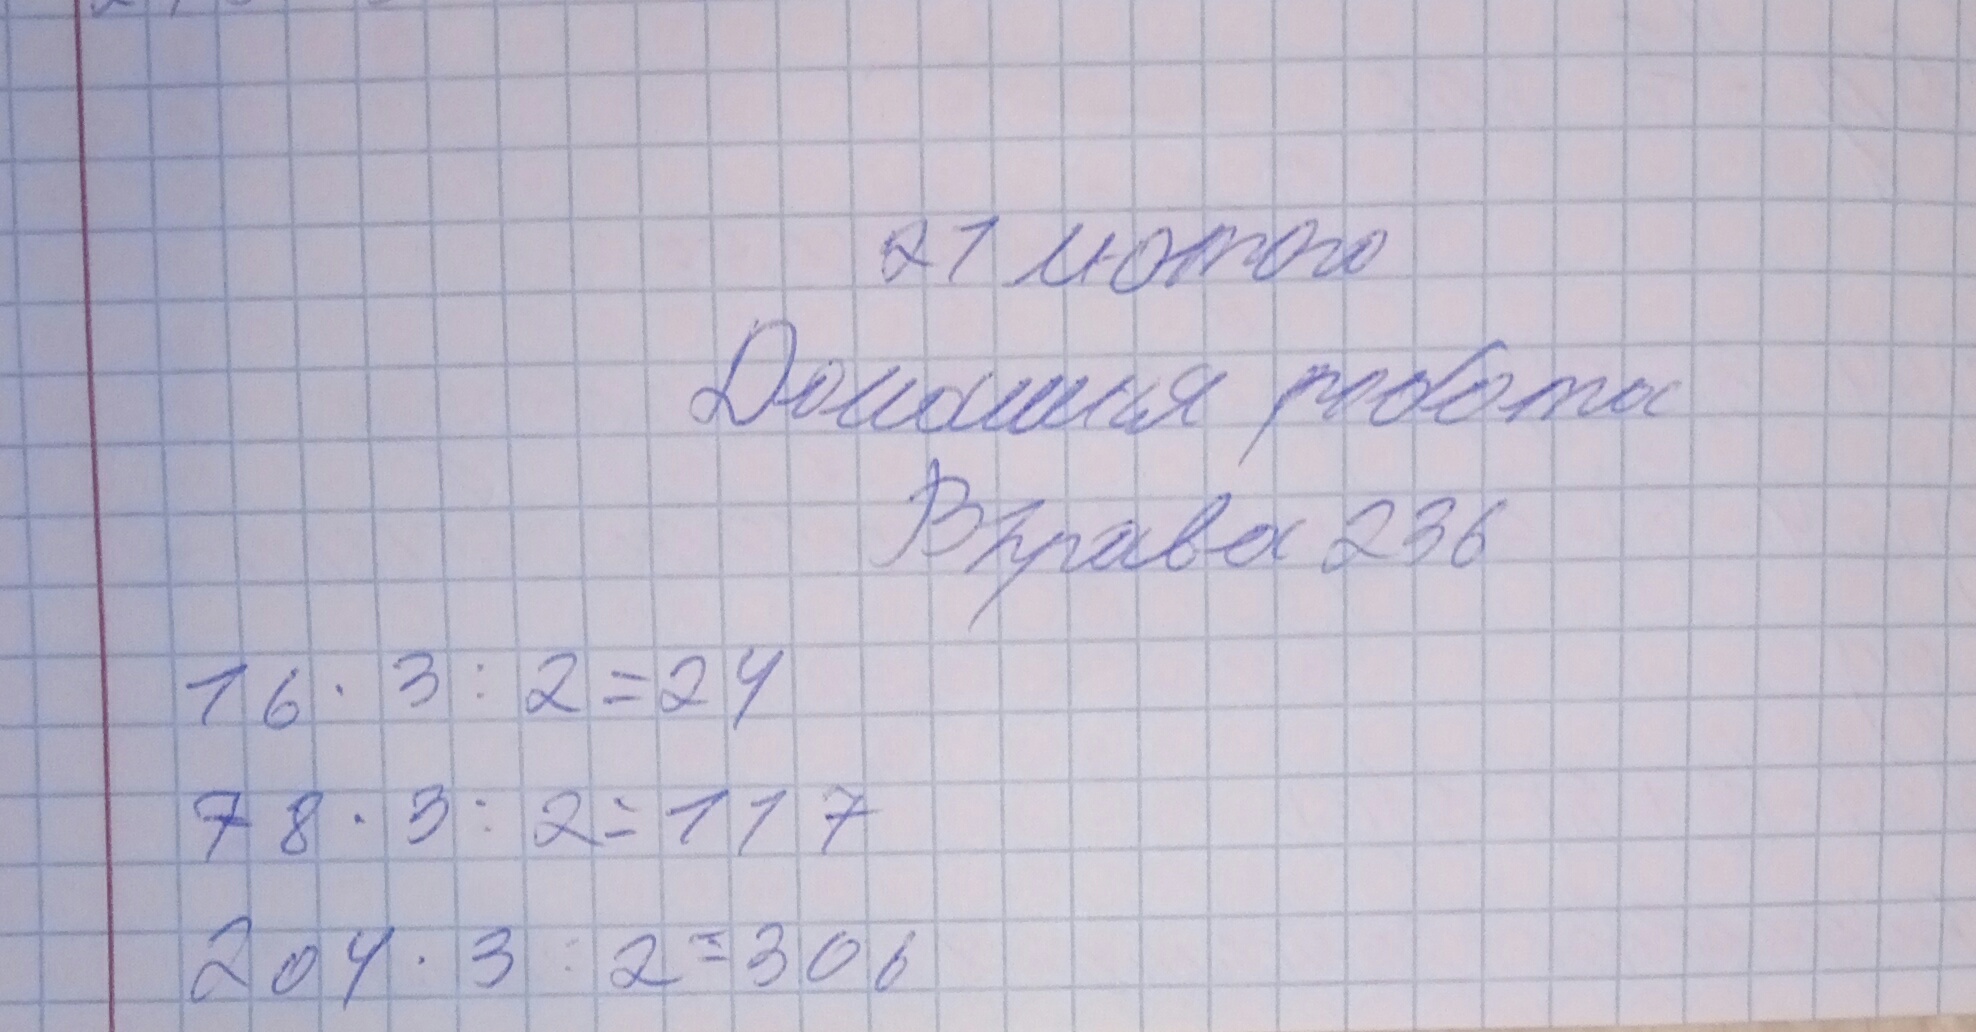 21 лютого
Домашня робота
Вправа 236
16 · 3 : 2 = 24
78 · 3 : 2 = 117
204 · 3 : 2 = 306